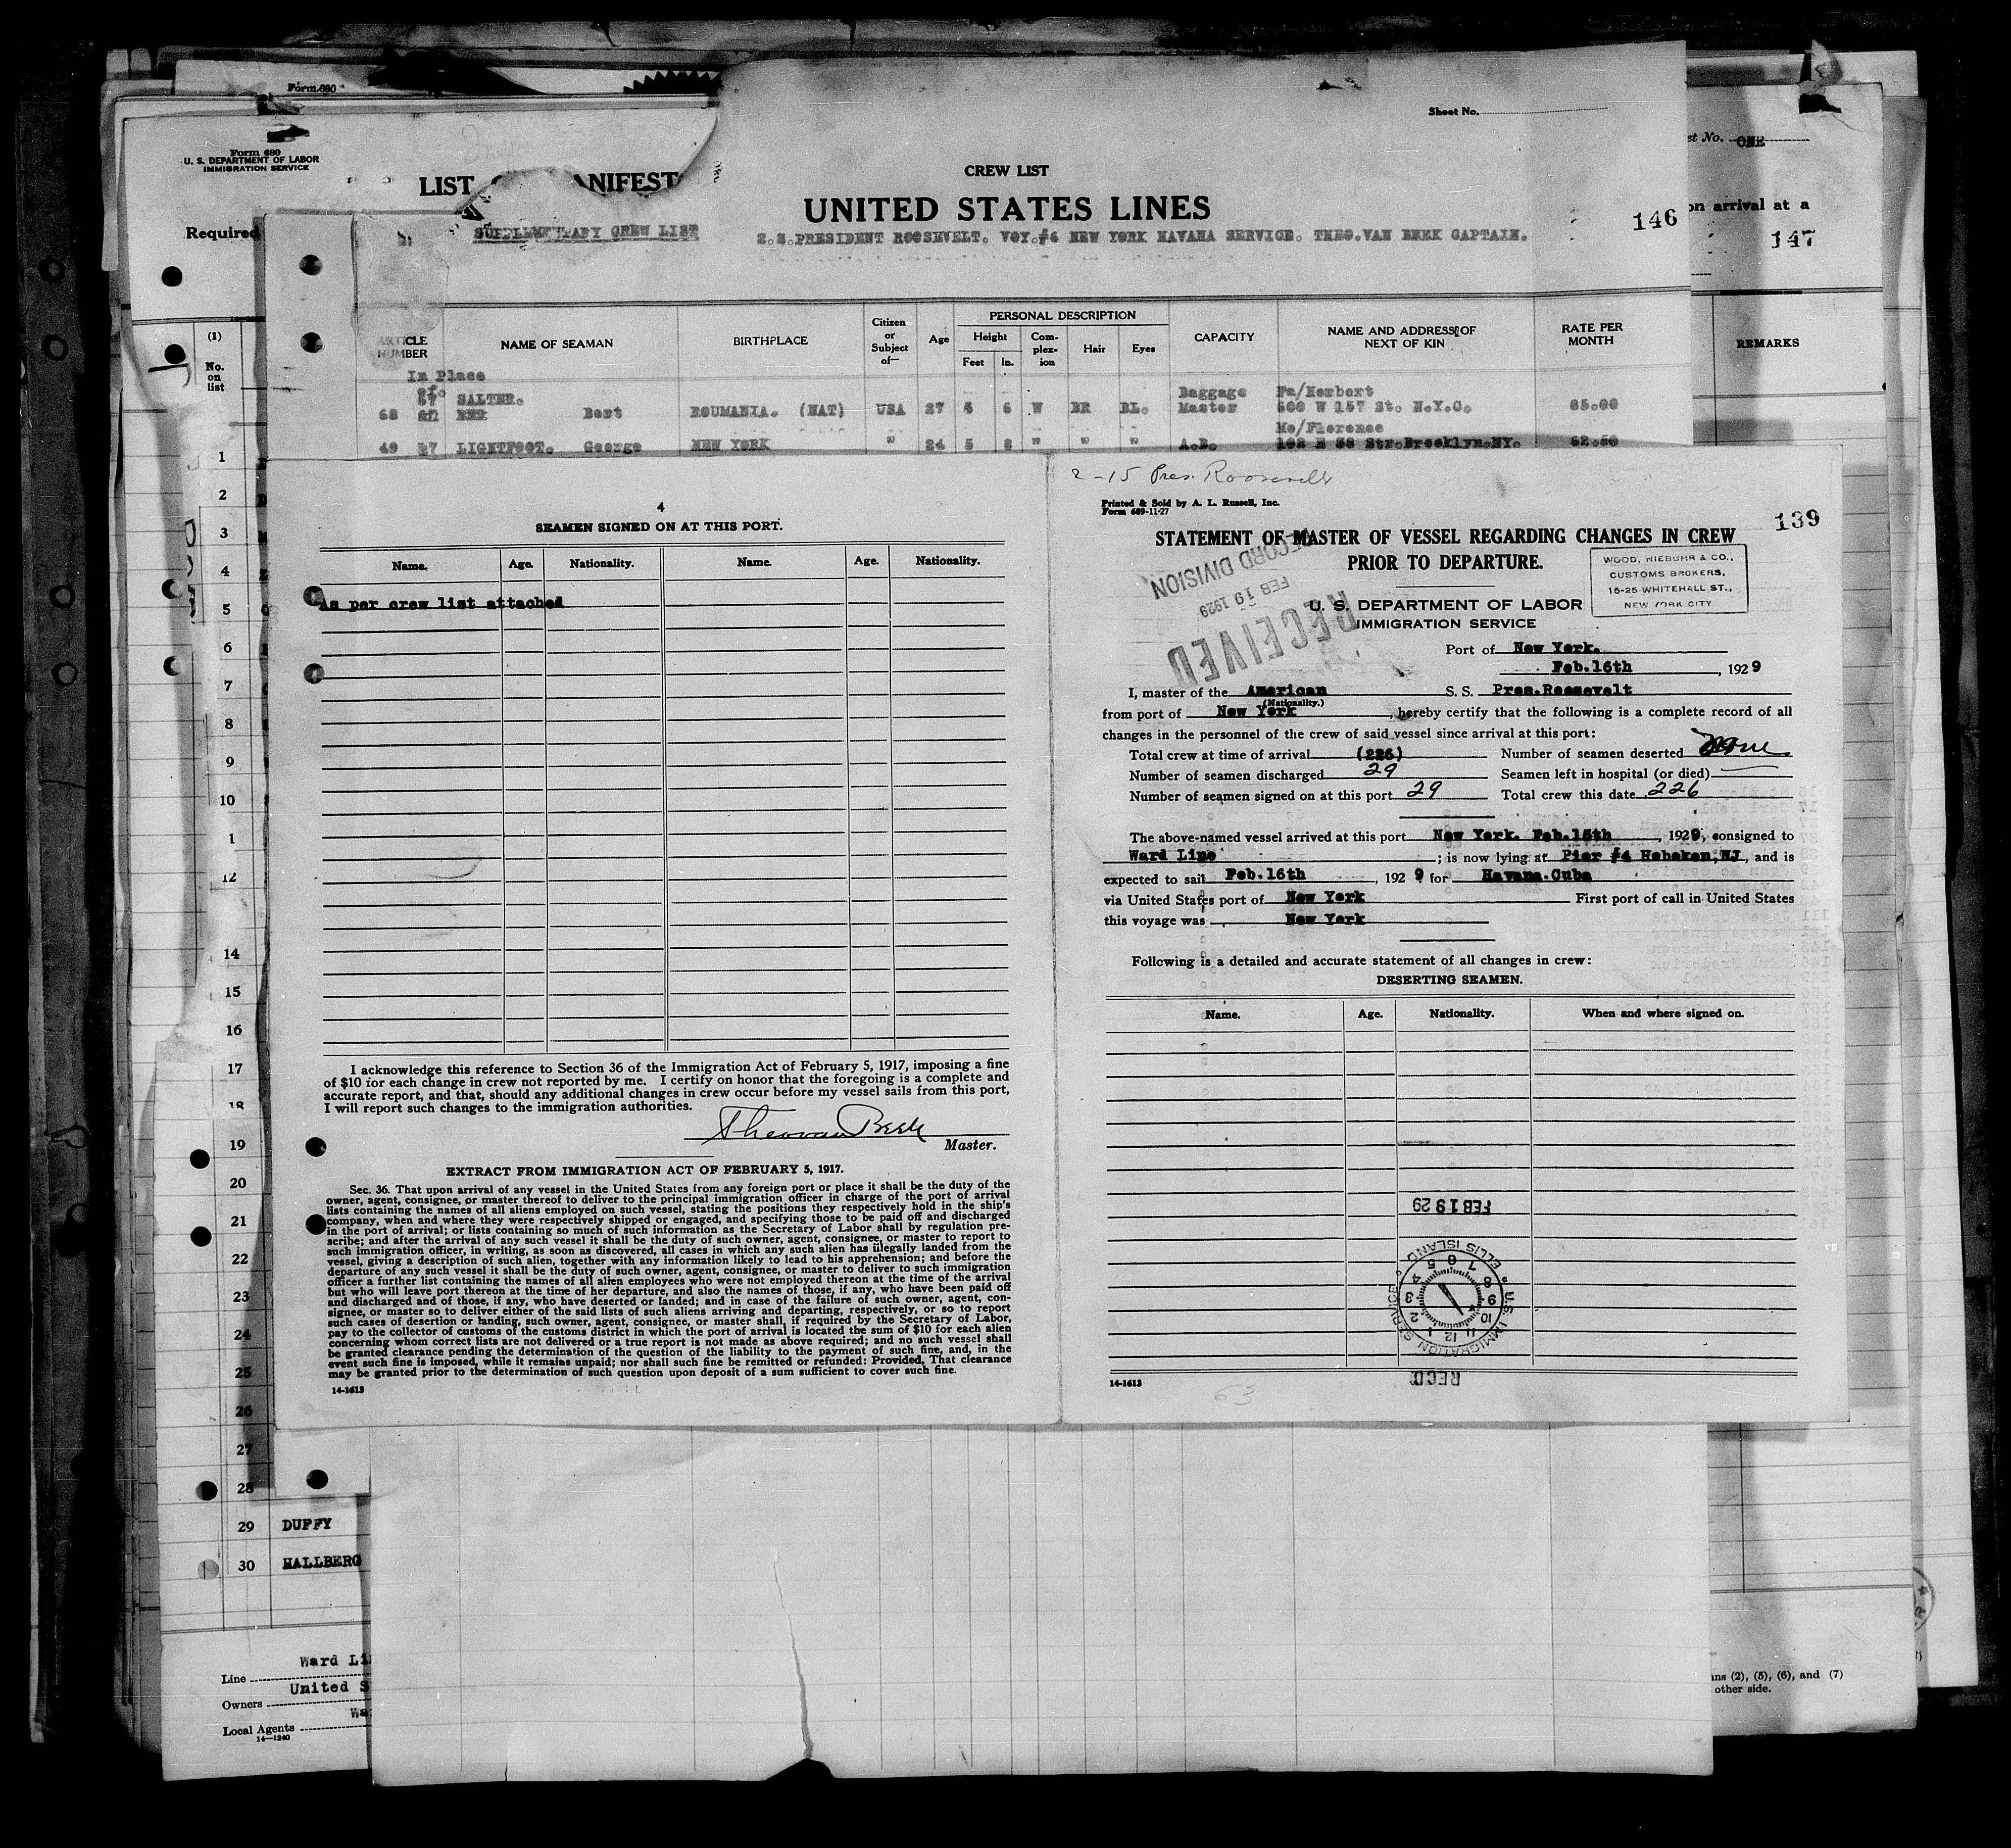 Form 680
Form 680
U. S. DEPARTMENT OF LABOR
IMMIGRATION SERVICE
LIST
ANIFEST
Required
et No. ONE
on arrival at a
147
(1)
No.
on
list
REMARKS
Sheet No.
CREW LIST
UNITED STATES LINES
146
SUPPLEMENTARY CREW LIST S.S.PRESIDENT ROOSEVELT. VOY.#6 NEW YORK HAVANA SERVICE. THEO.VAN BEEK CAPTAIN.
ARTICLE NUMBER
NAME OF SEAMAN
BIRTHPLACE
Citizen or Subject of—
Age
PERSONAL DESCRIPTION
Height
Feet In.
Com-plex-ion
Hair
Eyes
CAPACITY
NAME AND ADDRESS OF NEXT OF KIN
RATE PER MONTH
In Place
of
SALTER. Baggage Fa/Herbert
68 BER Bert ROUMANIA. (NAT) USA 27 5 6 W BR BL. Master 600 W 157 St. N.Y.C. 85.00
Mo/Florence
49 27 LIGHTFOOT. George NEW YORK " 24 5 8 " " " A.B. 102 E 38 Str.Brooklyn.NY. 62.50
4
SEAMEN SIGNED ON AT THIS PORT.
Name. Age. Nationality. Name. Age. Nationality.
As per crew list attached
I acknowledge this reference to Section 36 of the Immigration Act of February 5, 1917, imposing a fine
of $10 for each change in crew not reported by me. I certify on honor that the foregoing is a complete and
accurate report, and that, should any additional changes in crew occur before my vessel sails from this port,
I will report such changes to the immigration authorities.
Theo van Beek
Master.
EXTRACT FROM IMMIGRATION ACT OF FEBRUARY 5, 1917.
Sec. 36. That upon arrival of any vessel in the United States from any foreign port or place it shall be the duty of the
owner, agent, consignee, or master thereof to deliver to the principal immigration officer in charge of the port of arrival
lists containing the names of all aliens employed on such vessel, stating the positions they respectively hold in the ship's
company, when and where they were respectively shipped or engaged, and specifying those to be paid off and discharged
in the port of arrival; or lists containing so much of such information as the Secretary of Labor shall by regulation pre-
scribe; and after the arrival of any such vessel it shall be the duty of such owner, agent, consignee, or master to report to
such immigration officer, in writing, as soon as discovered, all cases in which any such alien has illegally landed from the
vessel, giving a description of such alien, together with any information likely to lead to his apprehension; and before the
departure of any such vessel it shall be the duty of such owner, agent, consignee, or master to deliver to such immigration
officer a further list containing the names of all alien employees who were not employed thereon at the time of the arrival
but who will leave port thereon at the time of her departure, and also the names of those, if any, who have been paid off
and discharged and of those, if any, who have deserted or landed; and in case of the failure of such owner, agent, con-
signee, or master so to deliver either of the said lists of such aliens arriving and departing, respectively, or so to report
such cases of desertion or landing, such owner, agent, consignee, or master shall, if required by the Secretary of Labor,
pay to the collector of customs of the customs district in which the port of arrival is located the sum of $10 for each alien
concerning whom correct lists are not delivered or a true report is not made as above required; and no such vessel shall
be granted clearance pending the determination of the question of the liability to the payment of such fine, and, in the
event such fine is imposed, while it remains unpaid; nor shall such fine be remitted or refunded: Provided, That clearance
may be granted prior to the determination of such question upon deposit of a sum sufficient to cover such fine.
14-1613
2-15 Pres. Roosevelt
Printed & Sold by A. L. Russell, Inc.
Form 689-11-27
139
STATEMENT OF MASTER OF VESSEL REGARDING CHANGES IN CREW
PRIOR TO DEPARTURE.
WOOD, NIEBUHR & CO.,
CUSTOMS BROKERS,
15-25 WHITEHALL ST.,
NEW YORK CITY
RECORD DIVISION
FEB 19 1929
RECEIVED
U. S. DEPARTMENT OF LABOR
IMMIGRATION SERVICE
Port of New York.
Feb.16th, 1929
I, master of the American S. S. Pres.Roosevelt
(Nationality.)
from port of New York, hereby certify that the following is a complete record of all
changes in the personnel of the crew of said vessel since arrival at this port:
Total crew at time of arrival (226) Number of seamen deserted None
Number of seamen discharged 29 Seamen left in hospital (or died)
Number of seamen signed on at this port 29 Total crew this date 226
The above-named vessel arrived at this port New York. Feb.15th, 1929, consigned to
Ward Line; is now lying at Pier #4 Hoboken,NJ, and is
expected to sail Feb.16th, 1929 for Havana.Cuba
via United States port of New York First port of call in United States
this voyage was New York
Following is a detailed and accurate statement of all changes in crew:
DESERTING SEAMEN.
Name. Age. Nationality. When and where signed on.
FEB 19 29
U.S. IMMIGRATION SERVICE
ELLIS ISLAND
12 1 2 3 4 5 6 7 8 9 10 11
REC'D
14-1613
63
1
2
3
4
5
6
7
8
9
10
1
12
14
15
16
17
18
19
20
21
22
23
24
25
26
27
28
29 DUFFY
30 HALLBERG
Line Ward Li
Owners United S
Local Agents Wa
14—1240
ns (2), (5), (6), and (7)
other side.